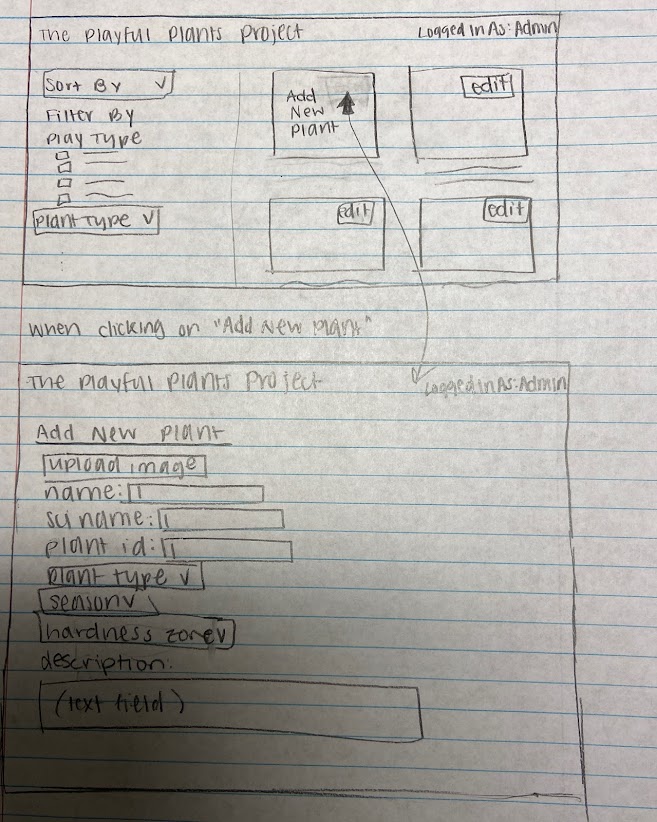 The Playful Plants Project
Logged In As: Admin
Sort By
Filter By
Play Type
Plant Type
Add
New
Plant
edit
edit
edit
When clicking on "Add New Plant"
The Playful Plants Project
Logged in As: Admin
Add New Plant
upload image
name:
sci name:
plant id:
plant type
season
hardness zone
description:
(text field)